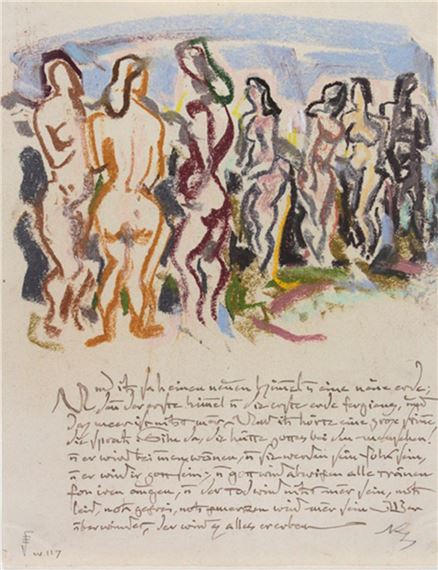 Und ich sah einen neuen himmel ū eine neue erde;
den der erste himel ū die erste erde fergieng, und
das meer ist nicht mer. Und ich horte eine grose stime,
die sprach: Sihe da, die hütte gottes bei den menschen!
ū er wird bei inen wonen, ū sie werden sein folk sein,
ū er wird ir gott sein; ū gott wird abwischen alle tränen
fon iren augen, ū der tod wird nicht mer sein, noch
leid, noch geschrei, noch schmerzen wird mer sein
überwindet, der wird es alles ererben
w. 117